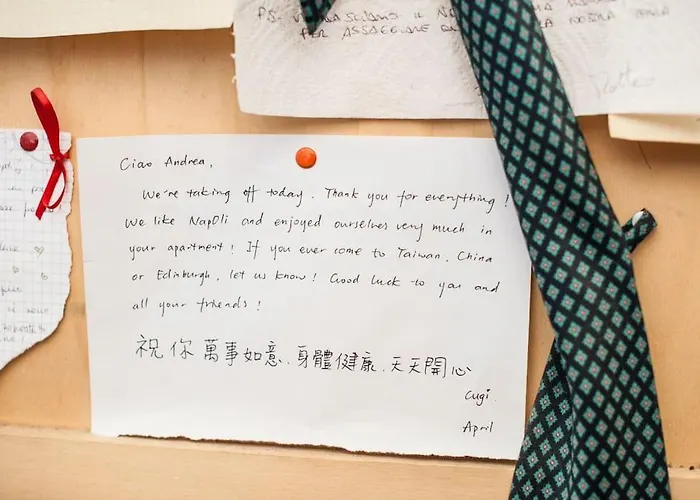 PS.
PER ASSAGGIARE
Ciao Andrea,
We're taking off today. Thank you for everything!
We like Napoli and enjoyed ourselves very much in
your apartment! If you ever come to Taiwan, China
or Edinburgh, let us know! Good luck to you and
all your friends!
祝你萬事如意、身體健康、天天開心
Cugi.
April